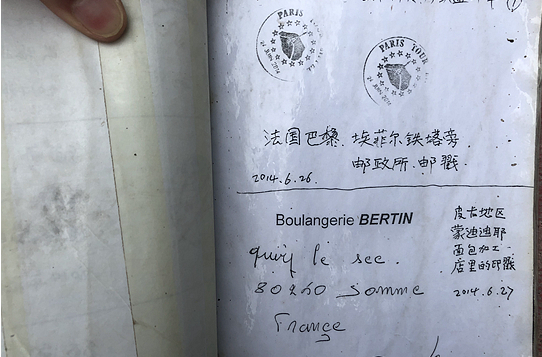 PARIS TOUR
PARIS TOUR
法国巴黎.埃菲尔铁塔旁.
邮政所.邮戳.
2014.6.26.
Boulangerie BERTIN
le
Somme
France
皮卡地区
蒙迪迪耶
面包加工
店里的印戳
2014.6.27